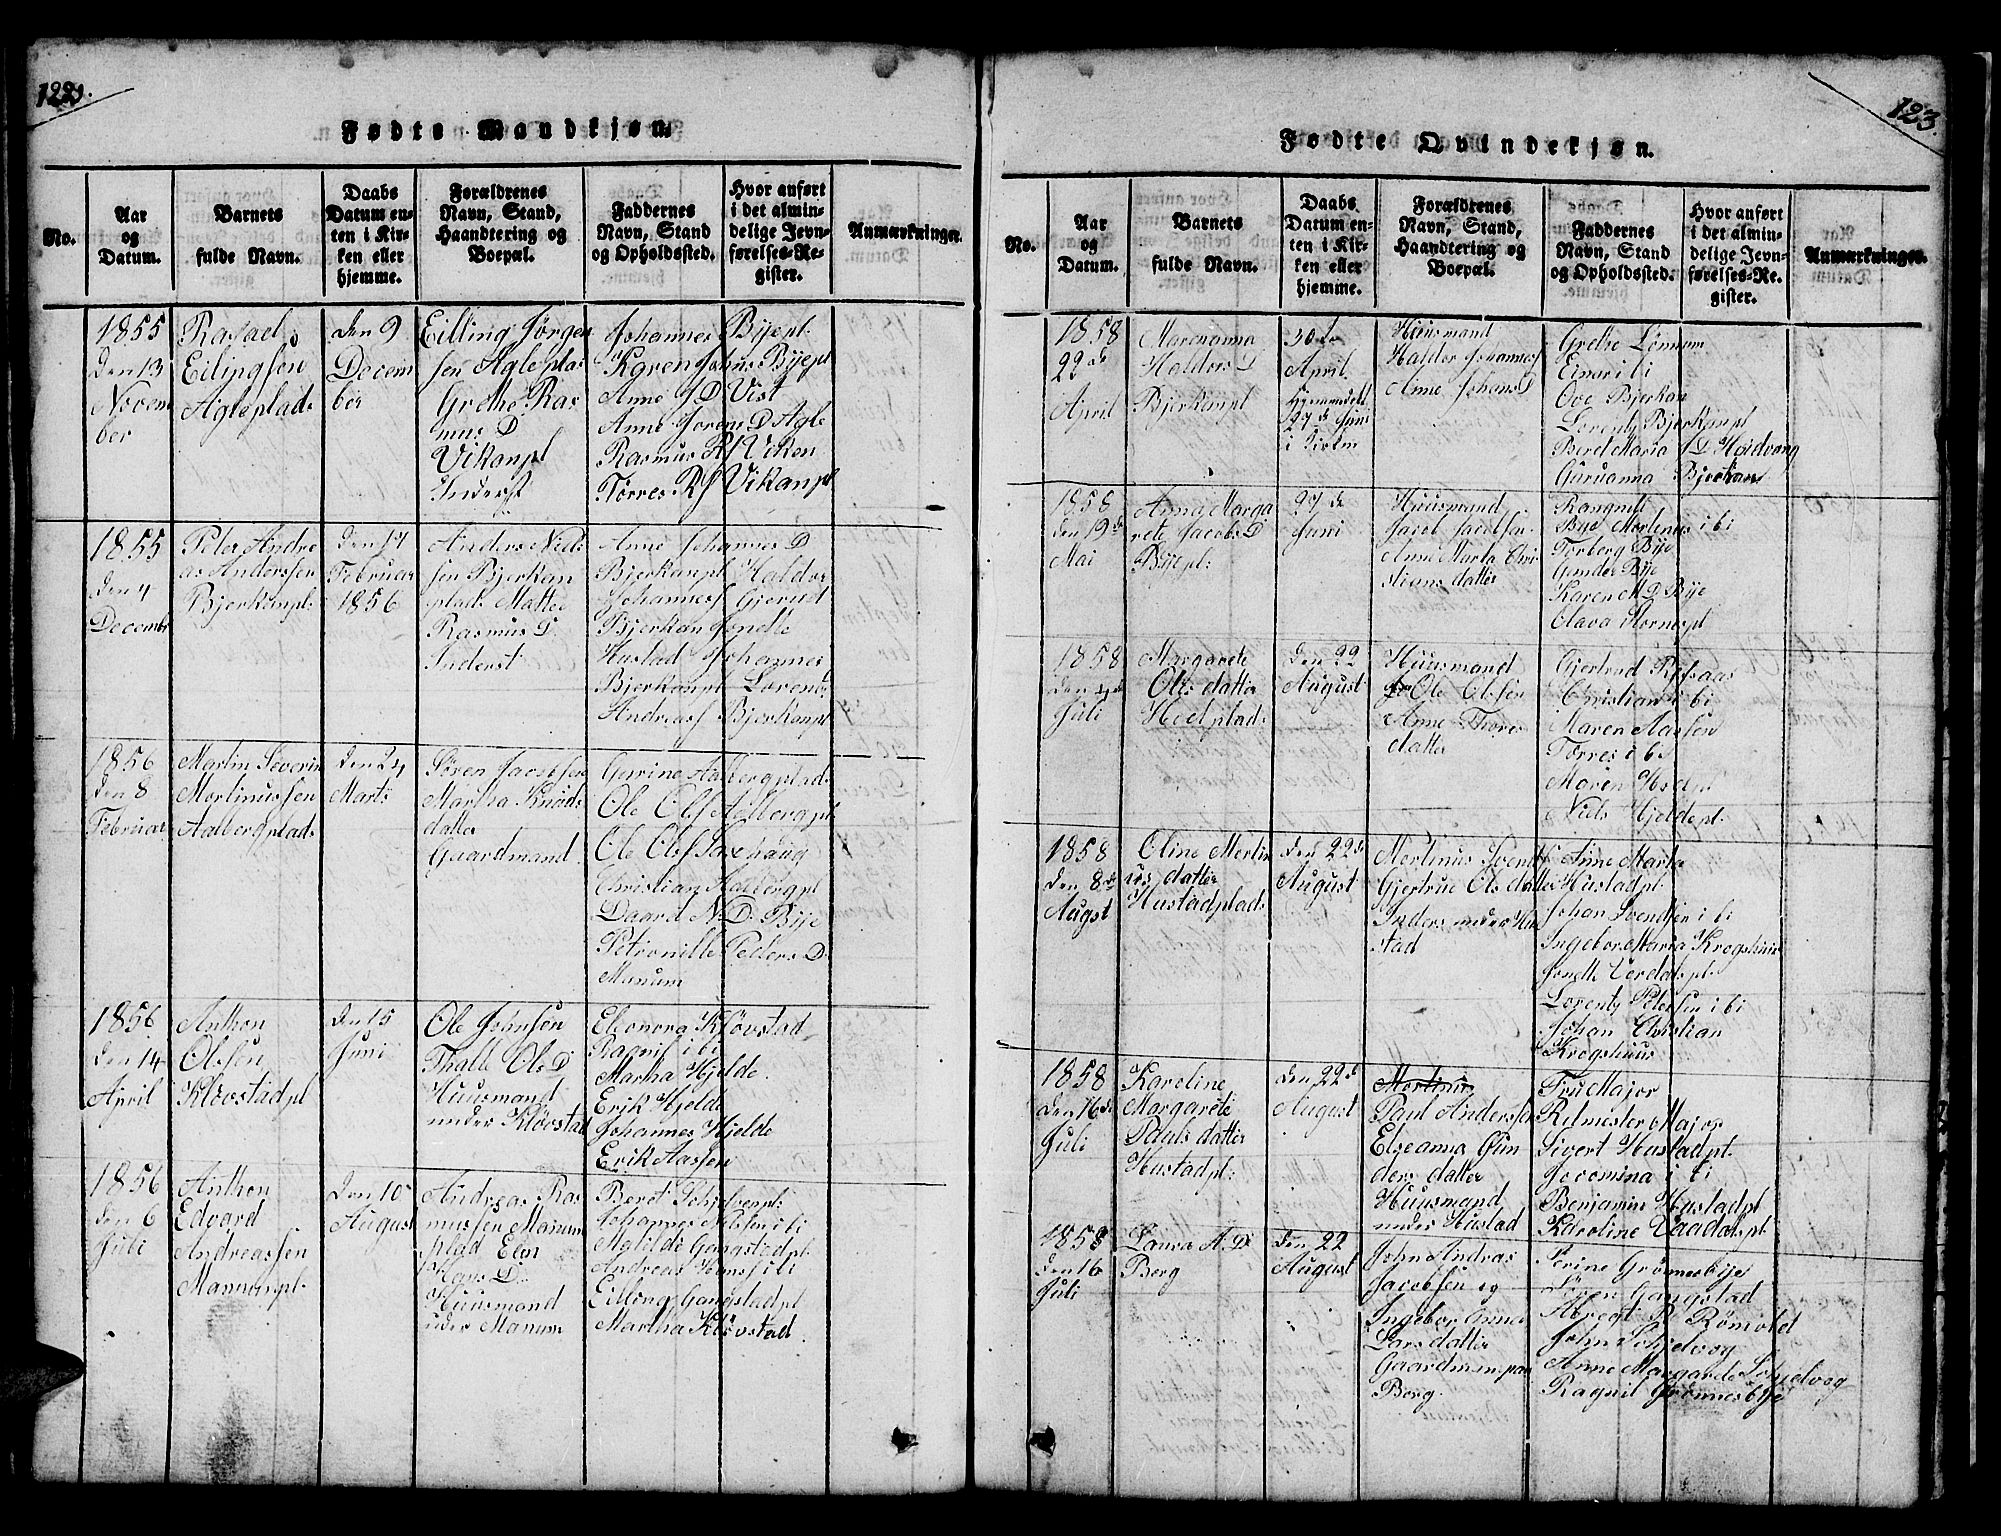 122.
Fødte Mandkjøn.
No.
Aar
og
Datum.
Barnets
fulde Navn.
Daabs
Datum en-
ten i Kir-
ken eller
hjemme.
Forældrenes
Navn, Stand,
Haandtering og
Boepæl.
Faddernes
Navn, Stand
og Opholdssted.
Hvor anført
i det almin-
delige Jevn-
førelses-Re-
gister.
Anmærkninger.
1855
den 13
Novem
ber
Rasael
Eilingsen
Agleplads
den 9
Decem
ber
Eilling Jørgen
sen Agleplas
Grethe Ras
mus D
Vikanpl
Inderst
Johannes Byepl
Karen Johns Byepl
Anne J D Vist
Anne Jorens D Agle
Rasmus Rs Viken
Torres Rs Vikanpl
1855
den 4
Decembr
Peter Andre
as Anderssen
Bjerkanpl:
den 17
Februar
1856
Anders Niel
sen Bjerkan
plads Mattea
Rasmus D.
Inderst
Anne Johannes D
Bjerkanpl Haldor
Johannes Gjerud
Bjerkan Jonelle
Hustad Johannes
Bjerkanpl Lorends
Andreass Bjerkanpl
1856
den 8
Februar
Martin Severin
Mortinussen
Aalbergplads
den 24
Marts
Sören Jacobsen
Martha Knuds
datter
Gaardmand
Gurine Aalbergplads
Ole Ols Aalbergpl
Ole Ols Saxehaug
Christian Aalbergpl
Daard N. D. Bye
Petronille Peders D.
Manum
1856
den 14
April
Anthon
Olsen
Klövstadpl
den 15
Juni
Ole Johnsen
Thalle Ols D
Huusmand
under Klövstad
Eleonora Klövstad
Ragnif i bi
Martha Hjelde
Erik Hjelde
Johannes Hjelde
Erik Aassen
1856
den 6
Juli
Anthon
Edvard
Andreassen
Manumpl.
den 10
August
Andreas Ras
mussen Manum
plad Elen
Hans D.
Huusmand
uder Manum
Beret Schjelvenpl:
Johannes Nilsen i bi
Matilde Gangstadpl:
Andreas Hans i bi
Eilling Gangstadpl
Martha Klövstad
123.
Fødte Qvindekjøn.
No.
Aar
og
Datum.
Barnets
fulde Navn.
Daabs
Datum en-
ten i Kir-
ken eller
hjemme.
Forældrenes
Navn, Stand,
Haandtering og
Boepæl.
Faddernes
Navn, Stand
og Opholdssted.
Hvor anført
i det almin-
delige Jevn-
førelses-Re-
gister.
Anmærkninger.
1858
22de
April
Marenanna
Haldors D
Bjerkanpl
30te
April
27de Juni
i Kirken
Huusmand
Haldor Johannes
Anne Johans D
Grethe Lønnum
Einar i bi
Ove Bjerkan
Lorenty Bjerkanpl
Beret Maria D Høidvang
Guruanna Bjerkan
1858
den 19de
Mai
Anna Marga
rete Jacobs D
Byepl:
27de
Juni
Huusmand
Jacob Jacobsen
Anne Marta Chri
stians datter
Rangnil
Bye Mortinus i bi
Torberg Bye
Gunder Bye
Karen M D Bye
Olava Stornespl
1858
Juli
Margarete
Ols datter
Hoelplads
den 22
August
Huusmand
Ole Olsen
Anne Thores
datter
Gjertrud Ryssaas
Christian i bi
Maren Aaslen
Torres i bi
Maren Hoelpl
Niels Hjeldepl.
1858
den 8de
Augst
Oline Mortin
us datter
Hustadplads
den 22de
August
Mortinus Svends
Gjertrue Ols datter
Inders under Hu
stad
Anne Marta
Hustadpl.
Johan Svendsen i bi
Ingebor Maria Krogshuus
Jonette Verdalspl.
Lorenty Petersen i bi
Johan Christian
Krogshuus
1858
den 16de
Juli
Karoline
Margarete
Pauls datter
Hustadpl:
den 22d
August
Mortinus
Paul Andersen
Elseanna Gun
ders datter
Huusmand
under Hustad
Fru Major
Retmester Major
Sivert Hustadpl.
Jocomina i bi
Benjamin Hustadpl
Karoline Vaadalspl.
1858
den 16
Juli
Laura A. D.
Berg
den 22
August
John Andras
Jacobsen og
Ingebor Anne
Lars datter
Gaardman paa
Berg.
Perine Grönnesbye
Sören Gangstad
Abregt R. Römoled
John Schjelvog
Anne Margarde Schjelvog
Ragnil Grönnesbye